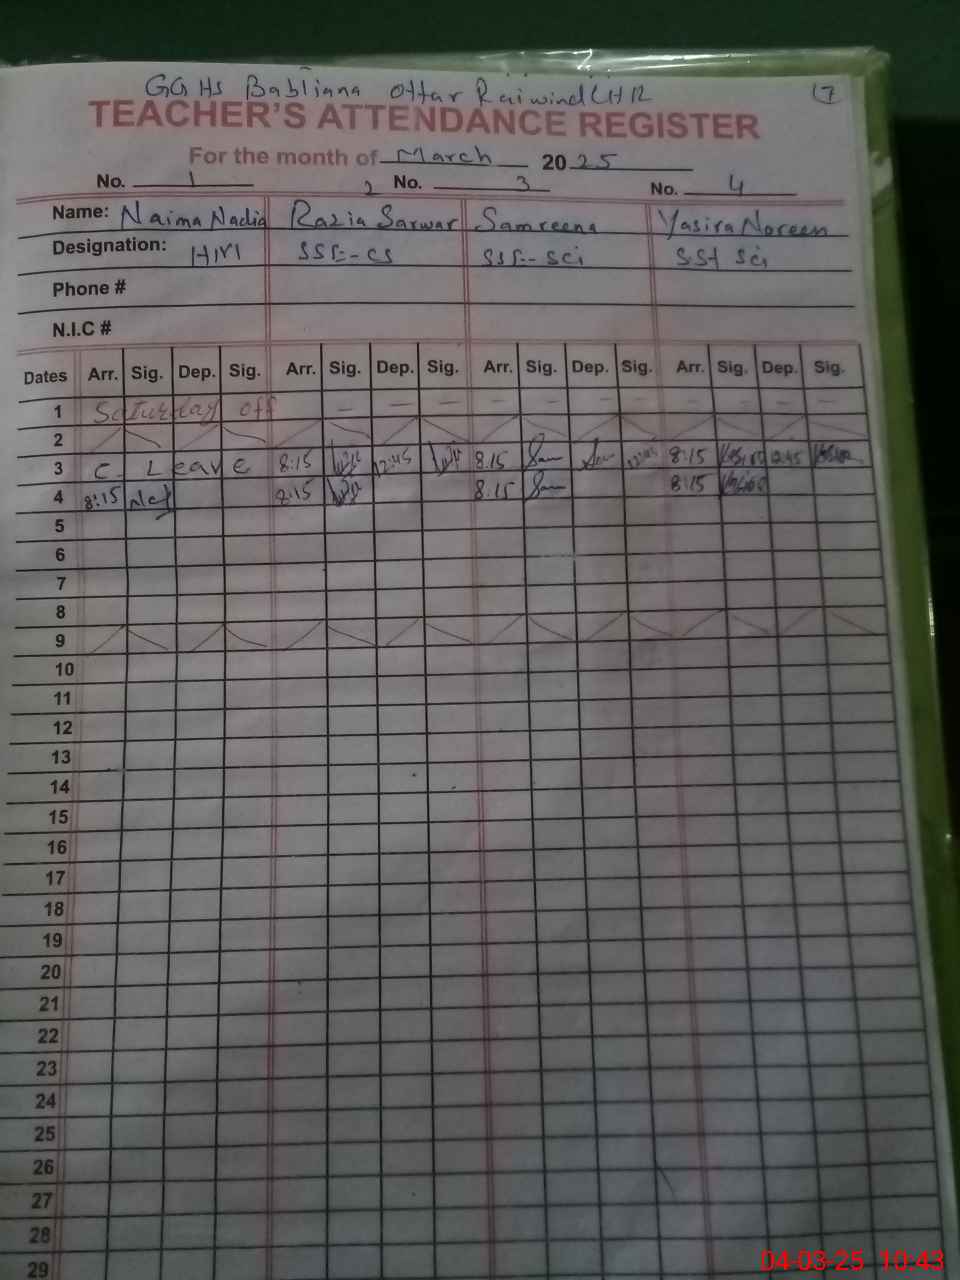 GGHS Babliana Ottar Raiwind LHR 17
TEACHER'S ATTENDANCE REGISTER
For the month of March 2025
No. 1 2 No. 3 No. 4
Name: Naima Nadia Razia Sarwar Samreena Yasira Noreen
Designation: HM SSE-CS SSE-Sci SST Sci
Phone #
N.I.C #
Dates Arr. Sig. Dep. Sig. Arr. Sig. Dep. Sig. Arr. Sig. Dep. Sig. Arr. Sig. Dep. Sig.
1 Saturday off — — — — — — — — — — —
2
3 C. Leave 8:15 12:45 8:15 12:45 8:15 12:45
4 8:15 8:15 8:15 8:15
5
6
7
8
9
10
11
12
13
14
15
16
17
18
19
20
21
22
23
24
25
26
27
28
29
04-03-25 10:43